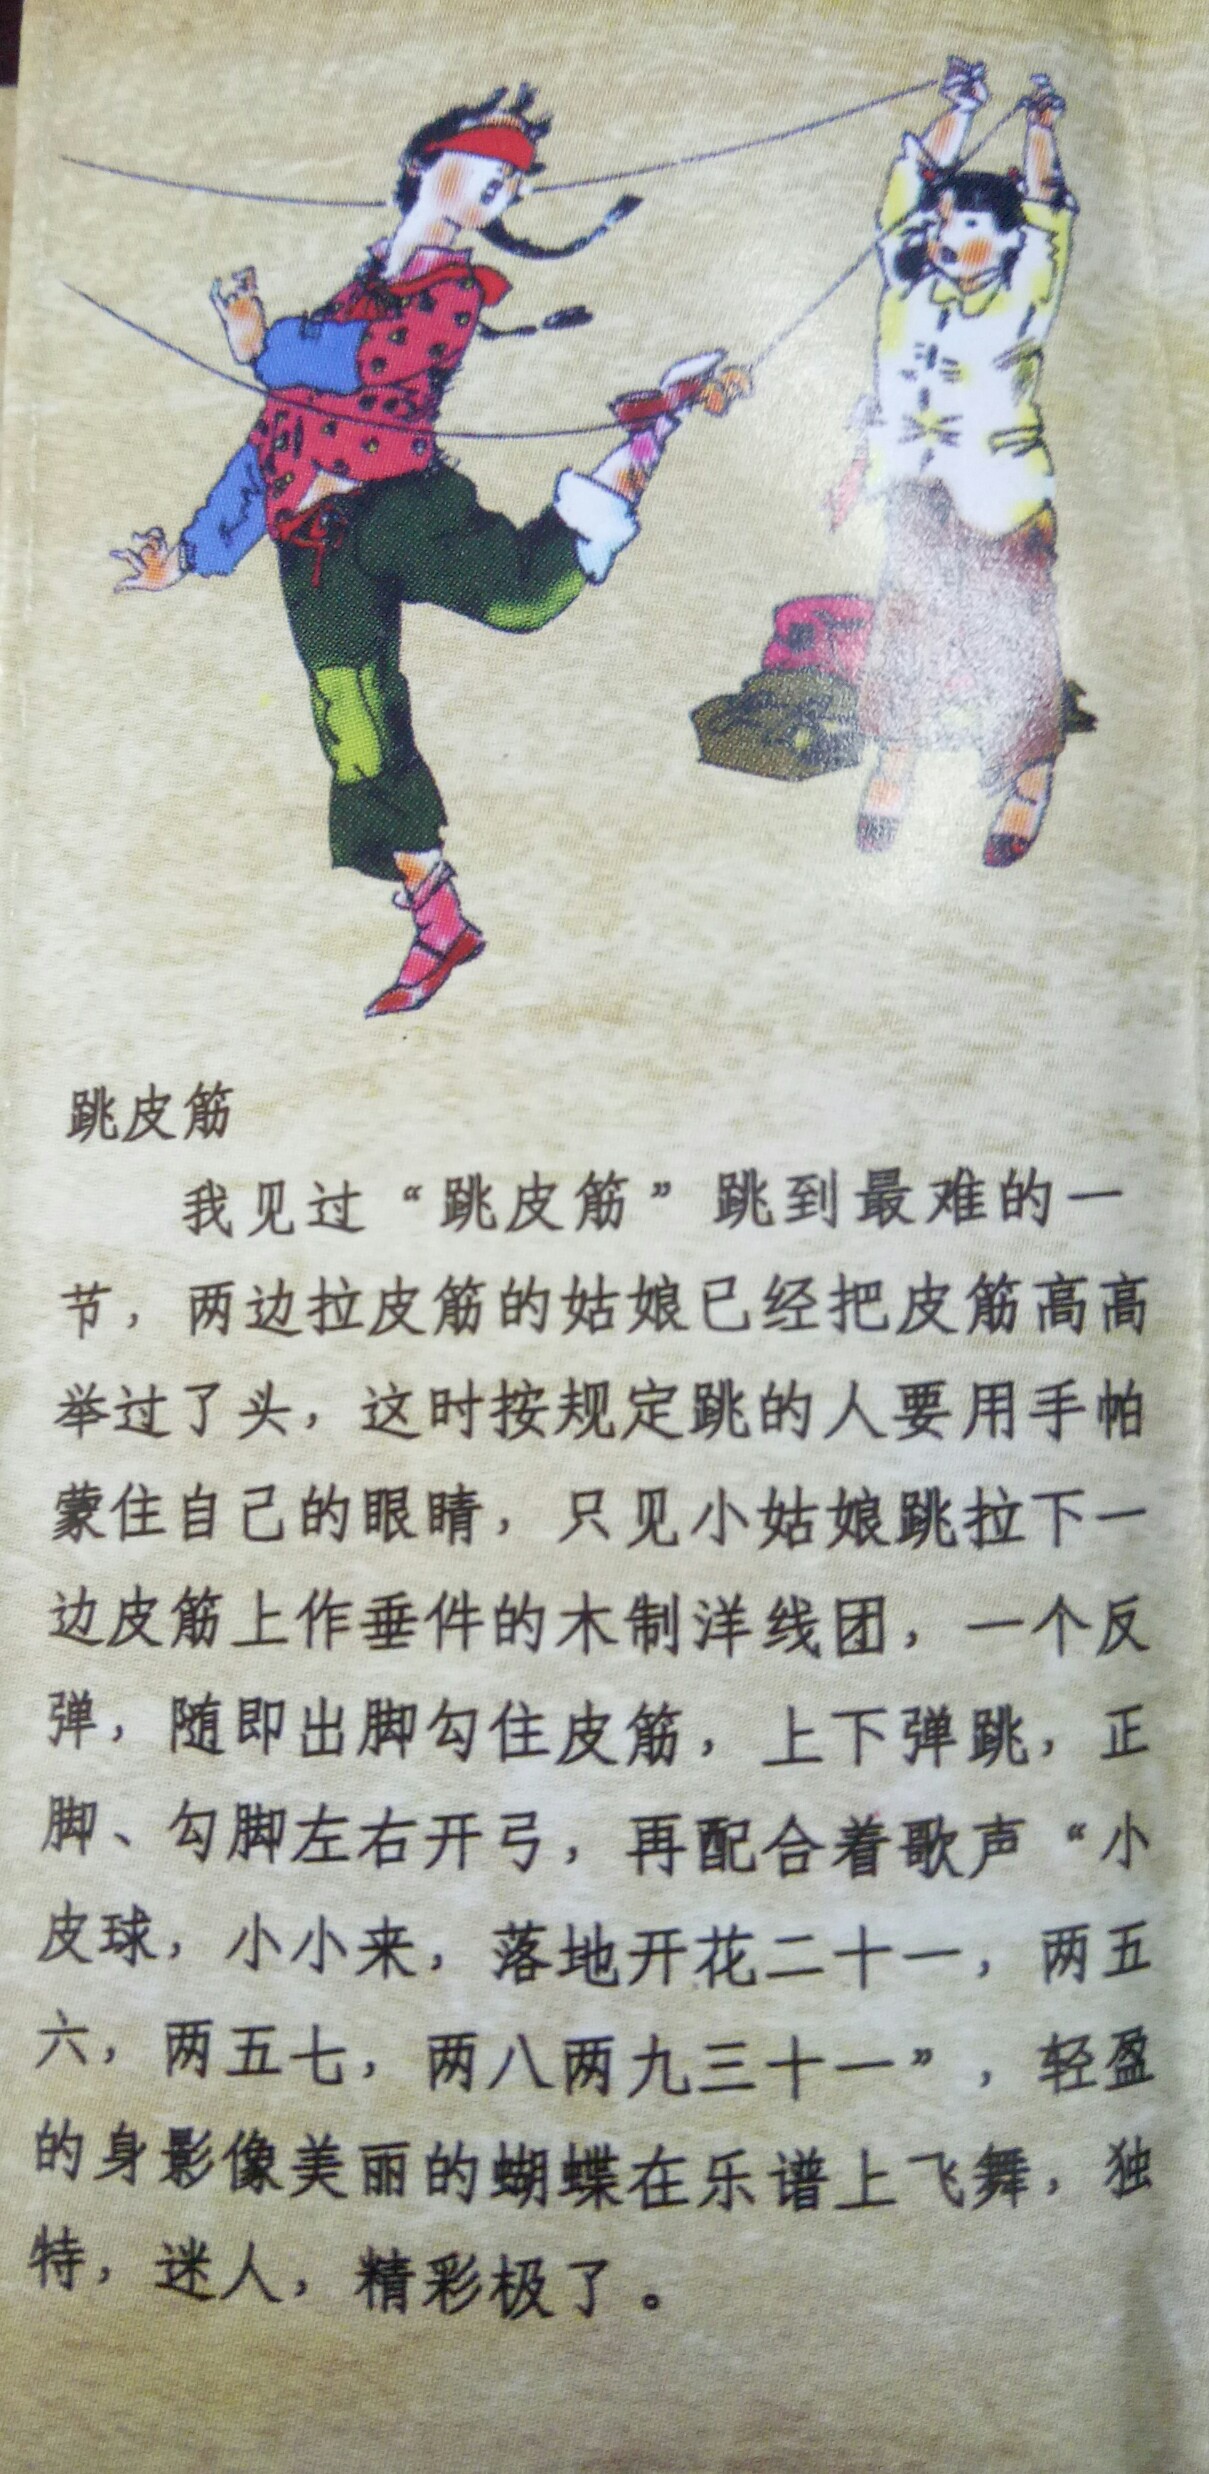 跳皮筋
我见过“跳皮筋”跳到最难的一
节，两边拉皮筋的姑娘已经把皮筋高高
举过了头，这时按规定跳的人要用手帕
蒙住自己的眼睛，只见小姑娘跳拉下一
边皮筋上作垂件的木制洋线团，一个反
弹，随即出脚勾住皮筋，上下弹跳，正
脚、勾脚左右开弓，再配合着歌声“小
皮球，小小来，落地开花二十一，两五
六，两五七，两八两九三十一”，轻盈
的身影像美丽的蝴蝶在乐谱上飞舞，独
特，迷人，精彩极了。